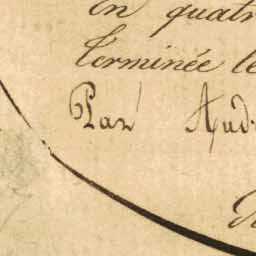 en quatr
Terminée le
Par Aud